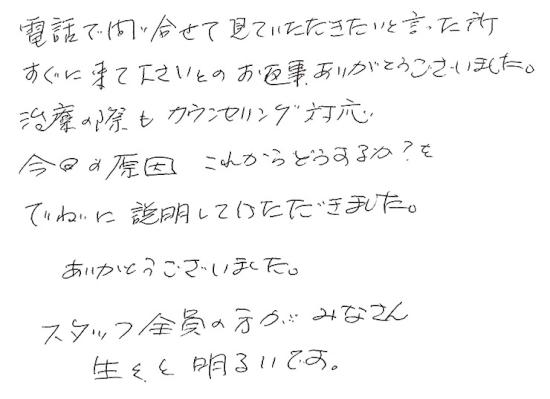 電話で問い合せて見ていただきたいと言った所
すぐに来て下さいとのお返事ありがとうございました。
治療の際もカウンセリング対応
今日の原因 これからどうするか?を
ていねいに説明していただきました。
ありがとうございました。
スタッフ全員の方がみなさん
生き生きと明るいです。